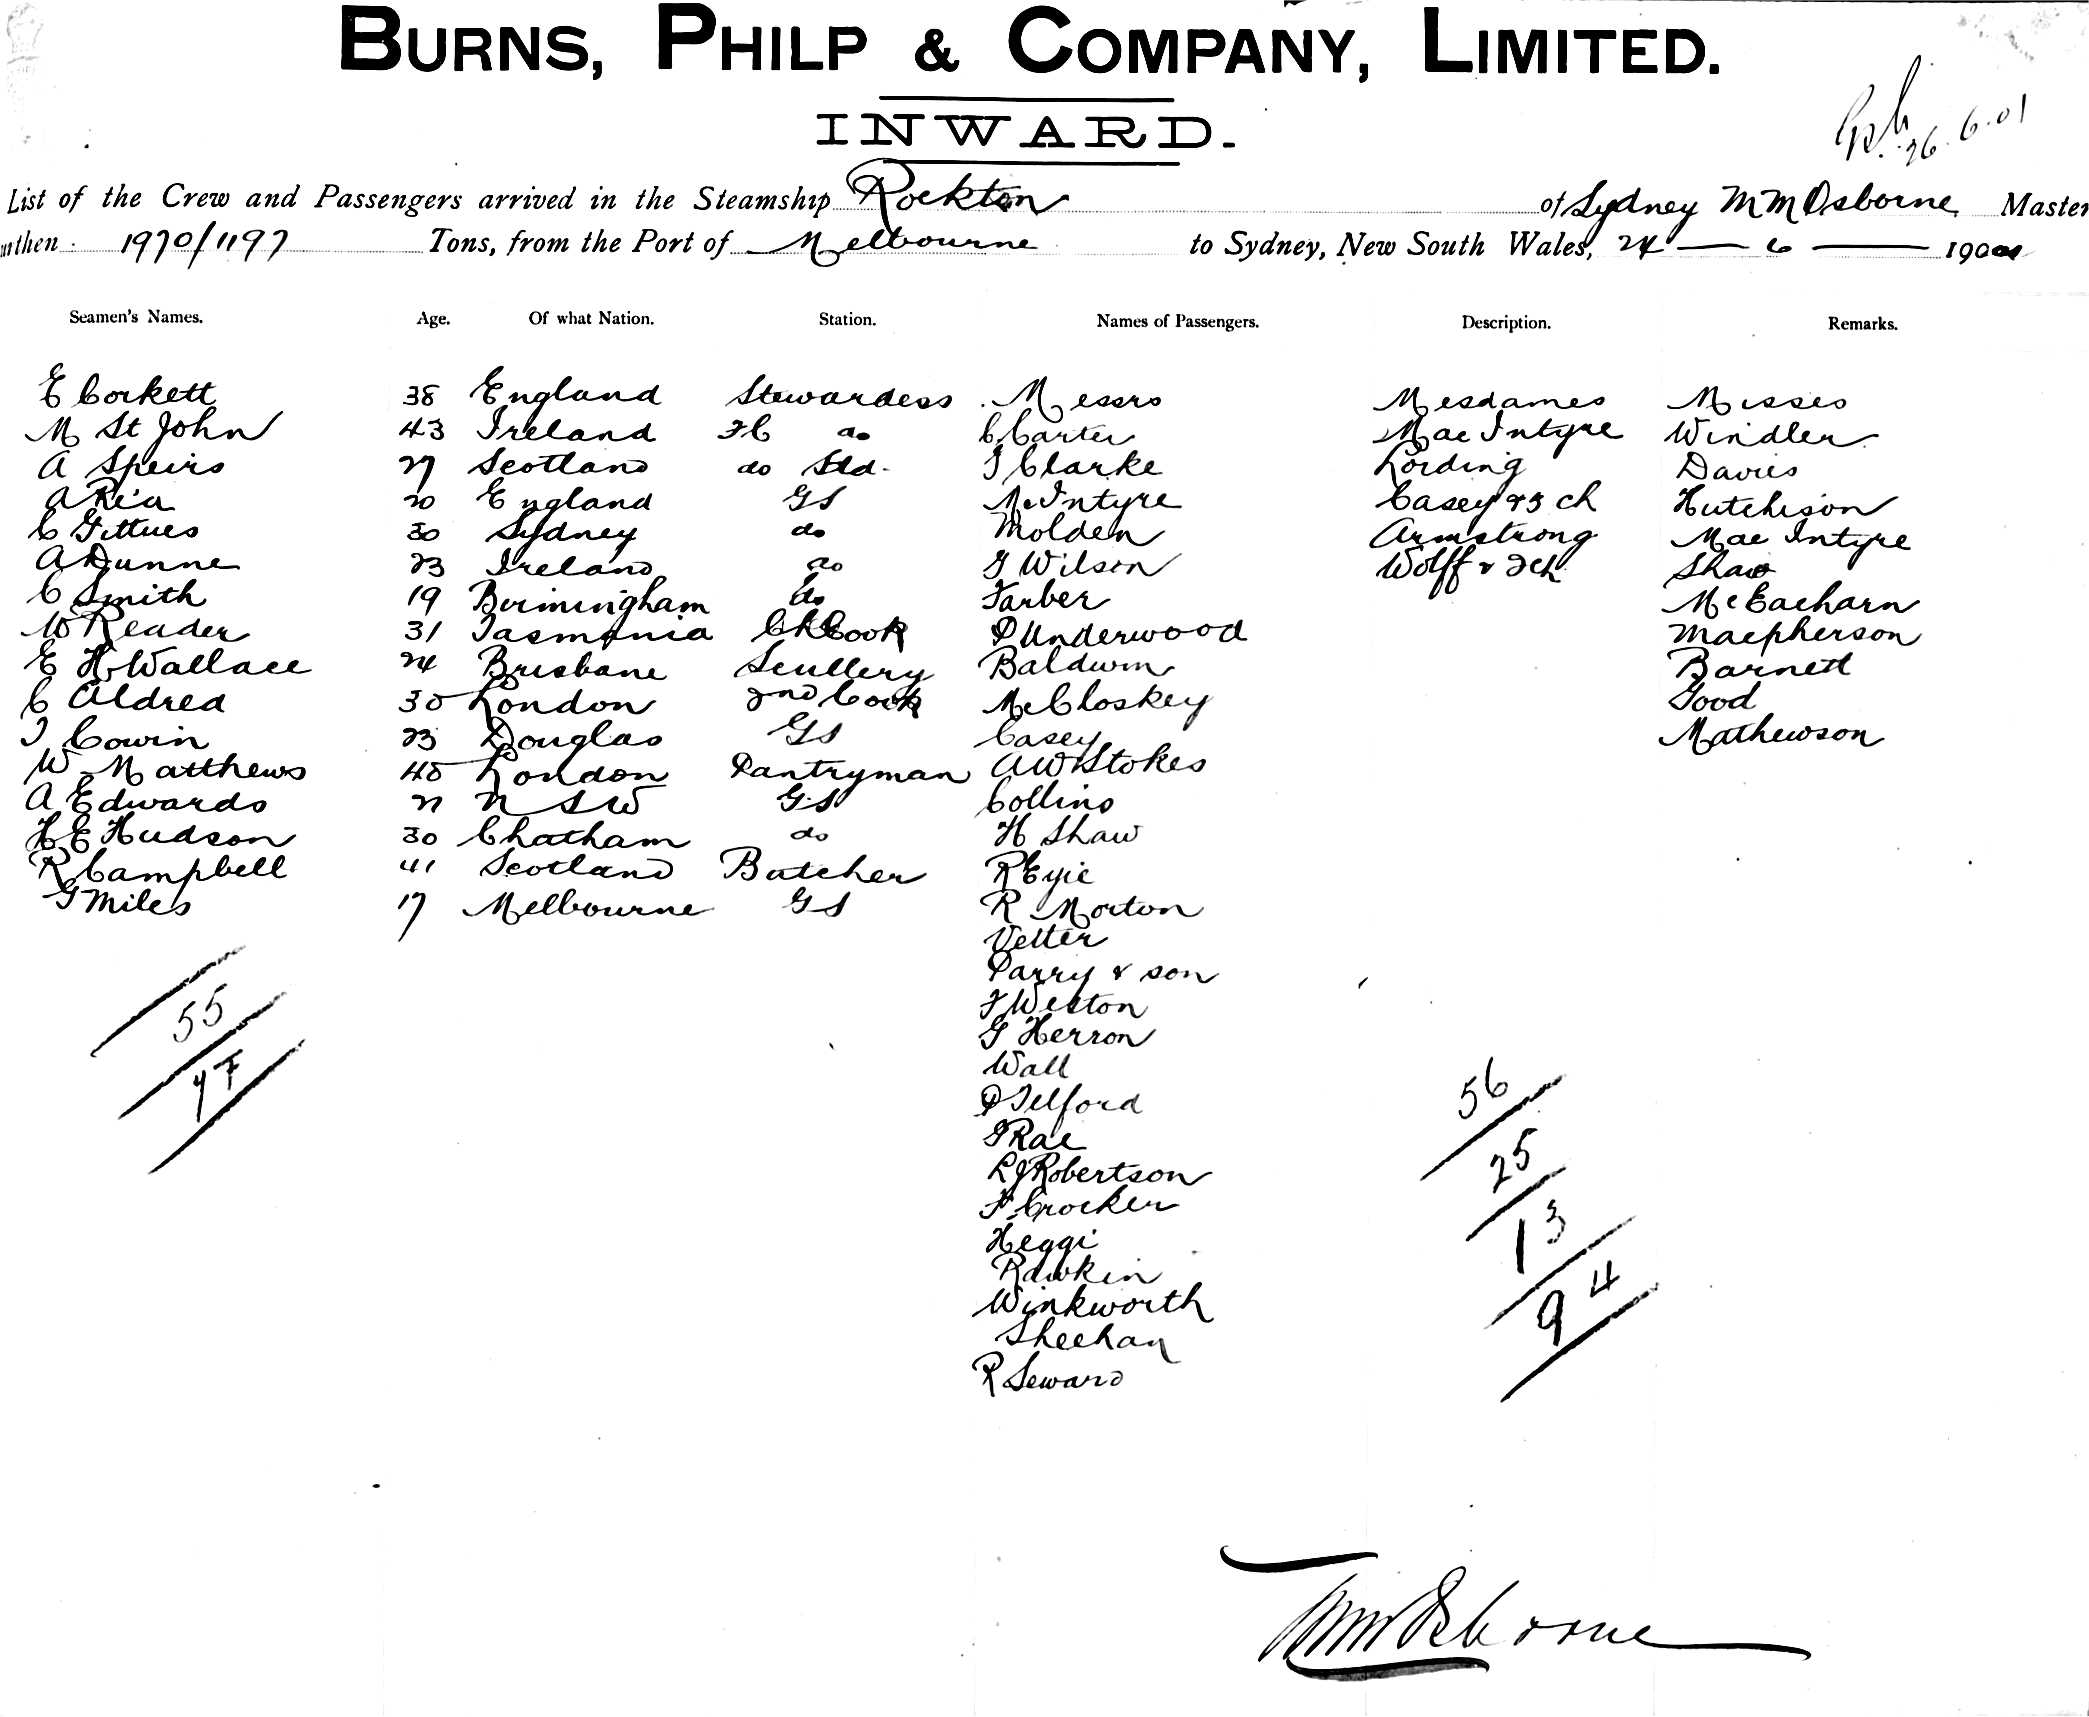 BURNS, PHILP & COMPANY, LIMITED.
INWARD.
26.6.01
List of the Crew and Passengers arrived in the Steamship Rockton of Sydney MM Osborne Master
urthen 1970/1197 Tons, from the Port of Melbourne to Sydney, New South Wales, 24 — 6 — 190
Seamen's Names. Age. Of what Nation. Station. Names of Passengers. Description. Remarks.
E Corkett 38 England Stewardess Messrs Mesdames Misses
M St John 43 Ireland FC do C Carter MacIntyre Windler
A Speirs 27 Scotland do Std. J Clarke Lording Davies
A Rea 20 England GS McIntyre Casey & 3 ch Hutchison
C Gittues 30 Sydney do Molden Armstrong MacIntyre
A Dunne 23 Ireland do G Wilson Wolff & 2ch Shaw
C Smith 19 Birmingham do Farber McEacharn
W Reader 31 Tasmania Ch Cook P Underwood Macpherson
E H Wallace 24 Brisbane Scullery Baldwin Barnett
C Aldred 30 London 2nd Cook McCloskey Good
J Cowin 23 Douglas GS Casey Mathewson
W Matthews 40 London Pantryman AW Stokes
A Edwards 21 NSW GS Collins
H E Hudson 30 Chatham do H Shaw
R Campbell 41 Scotland Butcher R Eyie
G Miles 17 Melbourne GS R Morton
Vetter
Parry & son
F Weston
G Herron
Wall
P Telford
G Rae
LJ Robertson
F Crocker
Heggi
Rawkin
Winkworth
Sheehan
R Seward
55
47
56
25
13
94
MM Osborne